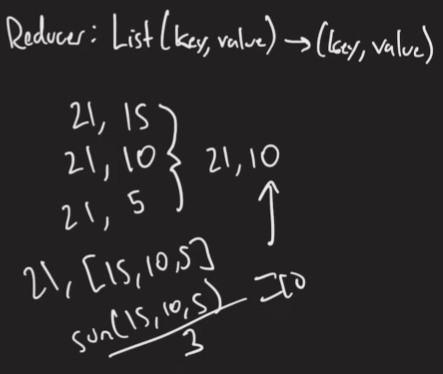 Reducer: List(key, value) → (key, value)
21, 15
21, 10 } 21, 10
21, 5
21, [15, 10, 5]
sum(15, 10, 5) = 10
3